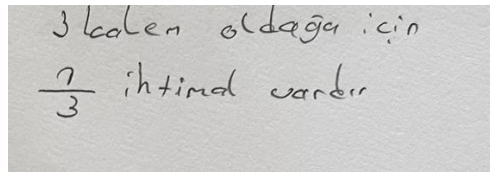 3 kalem oldağu için
1/3 ihtimal vardır